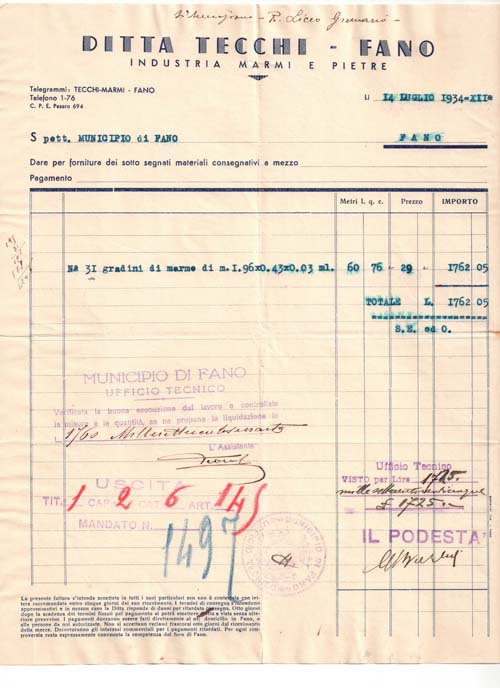 R. Liceo Ginnasio -
DITTA TECCHI - FANO
INDUSTRIA MARMI E PIETRE
Telegrammi: TECCHI-MARMI - FANO
Telefono 1-76
C. P. E. Pesaro 694
li 14 LUGLIO 1934-XII°
S pett. MUNICIPIO di FANO
FANO
Dare per forniture dei sotto segnati materiali consegnativi a mezzo
Pagamento
Metri l. q. c. Prezzo IMPORTO
N° 31 gradini di marmo di m.1.96x0.43x0.03 ml. 60 76 29 " 1762 05
TOTALE L. 1762 05
S.E. ed O.
MUNICIPIO DI FANO
UFFICIO TECNICO
Verificata la buona esecuzione del lavoro e controllate
la misure e le quantità, se ne propone la liquidazione in
L. 1760 Millesettecentosessanta
L'Assistente
USCITA
TIT. 1 CAP. 2 CAT. 6 ART. 145
MANDATO N. 1497
Ufficio Tecnico
VISTO per Lire 1725
millesettecentoventicinque
£ 1725.-
IL PODESTA'
La presente fattura s'intende accettata in tutti i suoi particolari se non è contestata con let-
tera raccomandata entro cinque giorni dal suo ricevimento. I termini di consegna s'intendono
approssimativi e in nessun caso la Ditta risponde di danni per ritardata consegna. Otto giorni
dopo la scadenza dei termini fissati pel pagamento si potrà emettere tratta a vista senza ulte-
riore preavviso. I pagamenti dovranno essere fatti direttamente alla Ditta, in Fano, o
alle persone da noi autorizzate. Non si accettano reclami trascorsi otto giorni dal ricevimento
della merce. Decorreranno gli interessi commerciali per i pagamenti ritardati. Per ogni con-
troversia resta espressamente convenuta la competenza del foro di Fano.